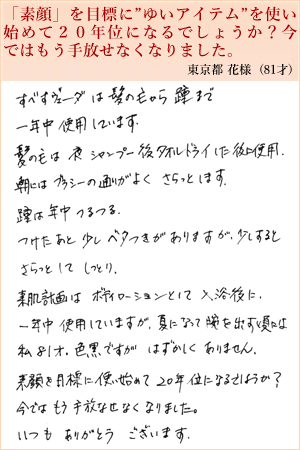 「素顔」を目標に”ゆいアイテム”を使い
始めて２０年位になるでしょうか？今
ではもう手放せなくなりました。
東京都 花様（81才）
すべすヴェーダは髪の毛から踵まで
一年中使用しています.
髪の毛は夜シャンプー後タオルドライした後に使用.
朝にはブラシーの通りがよくさらっとします.
踵は年中つるつる.
つけたあと少しベタつきがありますが、少しすると
さらっとしてしっとり.
素肌計画はボディローションとして入浴後に.
一年中使用していますが、夏になって腕を出す頃には
私81才.色黒ですがはずかしくありません.
素顔を目標に使い始めて20年位になるでしょうか？
今ではもう手放なせなくなりました。
いつもありがとうございます.